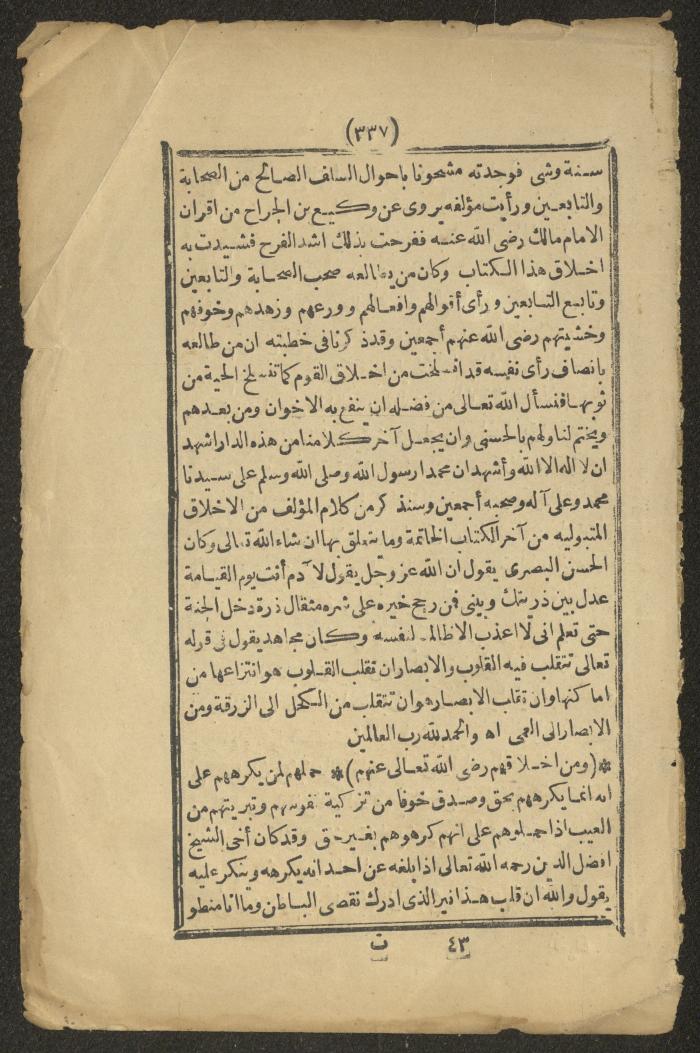 (٣٣٧)
سنة وشى فوجدته مشحونا باحوال السلف الصالح من الصحابة
والتابعين ورأيت مؤلفه يروى عن وكيع بن الجراح من اقران
الامام مالك رضى الله عنه ففرحت بذلك اشد الفرح فشيدت به
اخلاق هذا الكتاب وكان من يطالعه صحب الصحابة والتابعين
وتابع التابعين ورأى أقوالهم وافعالهم وورعهم وزهدهم وخوفهم
وخشيتهم رضى الله عنهم أجمعين وقد ذكرنا فى خطبته ان من طالعه
بانصاف رأى نفسه قد انسلخت من اخلاق القوم كما تنسلخ الحية من
ثوبها فنسأل الله تعالى من فضله ان ينفع به الاخوان ومن بعدهم
ويختم لنا ولهم بالحسنى وان يجعل آخر كلامنا من هذه الدار اشهد
ان لا اله الا الله وأشهد ان محمدا رسول الله وصلى الله وسلم على سيدنا
محمد وعلى آله وصحبه أجمعين وسنذكر من كلام المؤلف من الاخلاق
المتبوليه من آخر الكتاب الخاتمة وما يتعلق بها ان شاء الله تعالى وكان
الحسن البصرى يقول ان الله عز وجل يقول لآدم أنت يوم القيامة
عدل بين ذريتك وبينى فمن رجح خيره على شره مثقال ذرة دخل الجنة
حتى تعلم انى لا اعذب الا ظالما لنفسه وكان مجاهد يقول فى قوله
تعالى تتقلب فيه القلوب والابصار ان تقلب القلوب هو انتزاعها من
اماكنها وان تقلب الابصار هو ان تتقلب من الكحل الى الزرقة ومن
الابصار الى العمى اه والحمد لله رب العالمين
*(ومن اخلاقهم رضى الله تعالى عنهم)* حملهم لمن يكرههم على
انه انما يكرههم بحق وصدق خوفا من تزكية نفوسهم وتبريتهم من
العيب اذا حملوهم على انهم كرهوهم بغير حق وقد كان أخى الشيخ
افضل الدين رحمه الله تعالى اذا بلغه عن احد انه يكرهه وينكر عليه
يقول والله ان قلب هذا نير الذى ادرك نقصى الباطن وما انا منطو
٤٣ ت